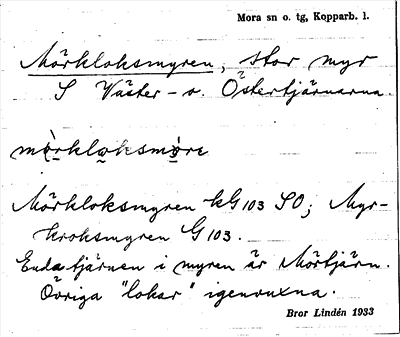 Mora sn o. tg, Kopparb. l.
Mörkloksmyren, stor myr
S Väster- o. Östertjärnarna.
mö̀rklo̱ksmö̀re
Mörkloksmyren kG 103 SO; Myr-
kroksmyren G 103.
Enda tjärnen i myren är Mörtjärn.
Övriga "lokar" igenvuxna.
Bror Lindén 1933